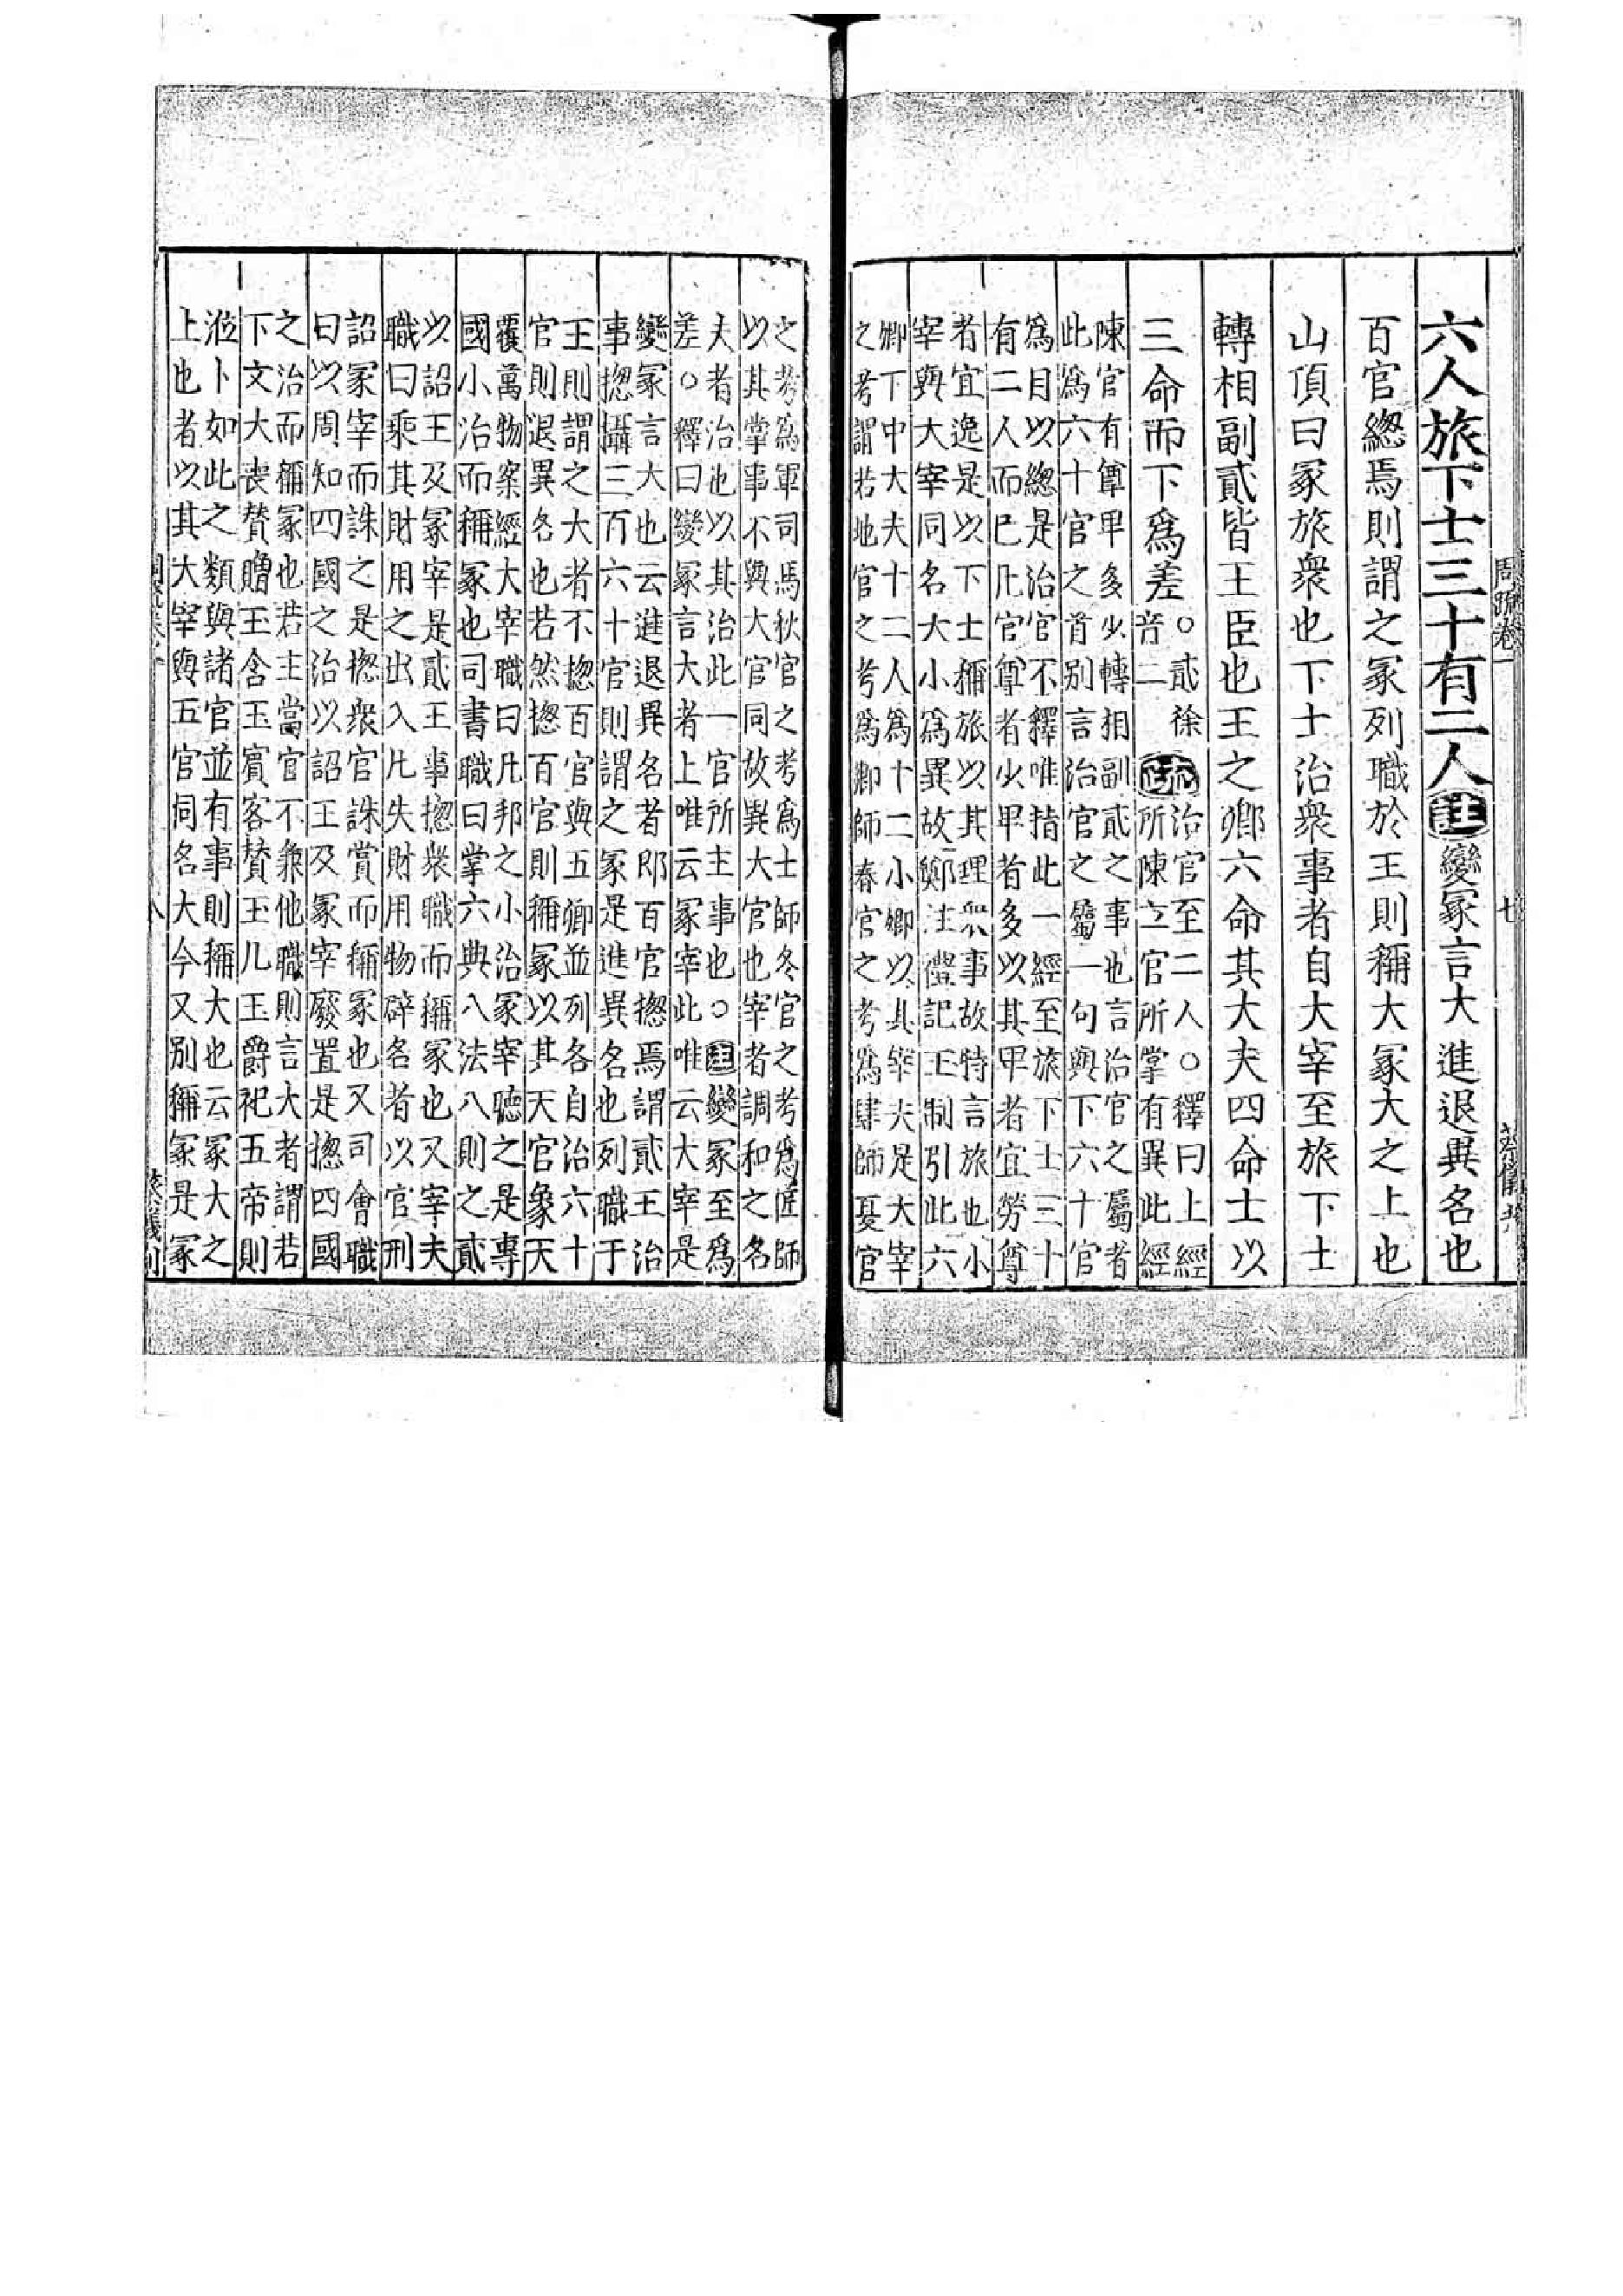 周疏卷一
六人旅下士三十有二人註變冢言大進退異名也
百官總焉則謂之冢列職於王則稱大冢大之上也
山頂曰冢旅衆也下士治衆事者自大宰至旅下士
轉相副貳皆王臣也王之卿六命其大夫四命士以
三命而下為差○貳徐
音二疏治官至二人○釋曰上經
所陳立官所掌有異此經
陳官有尊卑多少轉相副貳之事也言治官之屬者
此爲六十官之首別言治官之屬一句與下六十官
爲目以總是治官不釋唯指此一經至旅下士三十
有二人而已凡官尊者少卑者多以其卑者宜勞尊
者宜逸是以下士稱旅以其理衆事故特言旅也小
宰與大宰同名大小爲異故鄭注禮記王制引此六
卿下中大夫十二人爲十二小卿以其宰夫是大宰
之考謂若地官之考爲鄉師春官之考爲肆師夏官
之考爲軍司馬秋官之考爲士師冬官之考爲匠師
以其掌事不與大官同故異大官也宰者調和之名
夫者治也以其治此一官所主事也○註變冢至爲
差○釋曰變冢言大者上唯云冢宰此唯云大宰是
變冢言大也云進退異名者郎百官揔焉謂貳王治
事揔攝三百六十官則謂之冢是進異名也列職于
王則謂之大者不揔百官與五卿並列各自治六十
官則退異名也若然揔百官則稱冢以其天官象天
覆萬物案經大宰職曰凡邦之小治冢宰聽之是專
國小治而稱冢也司書職曰掌六典八法八則之貳
以詔王及冢宰是貳王事揔衆職而稱冢也又宰夫
職曰乘其財用之出入凡失財用物辟名者以官刑
詔冢宰而誅之是揔衆官誅賞而稱冢也又司會職
曰以周知四國之治以詔王及冢宰廢置是揔四國
之治而稱冢也若主當官不兼他職則言大者謂若
下文大喪贊贈玉含玉賓客贊玉几玉爵祀五帝則
涖卜如此之類與諸官並有事則稱大也云冢大之
上也者以其大宰與五官同名大今又別稱冢是冢